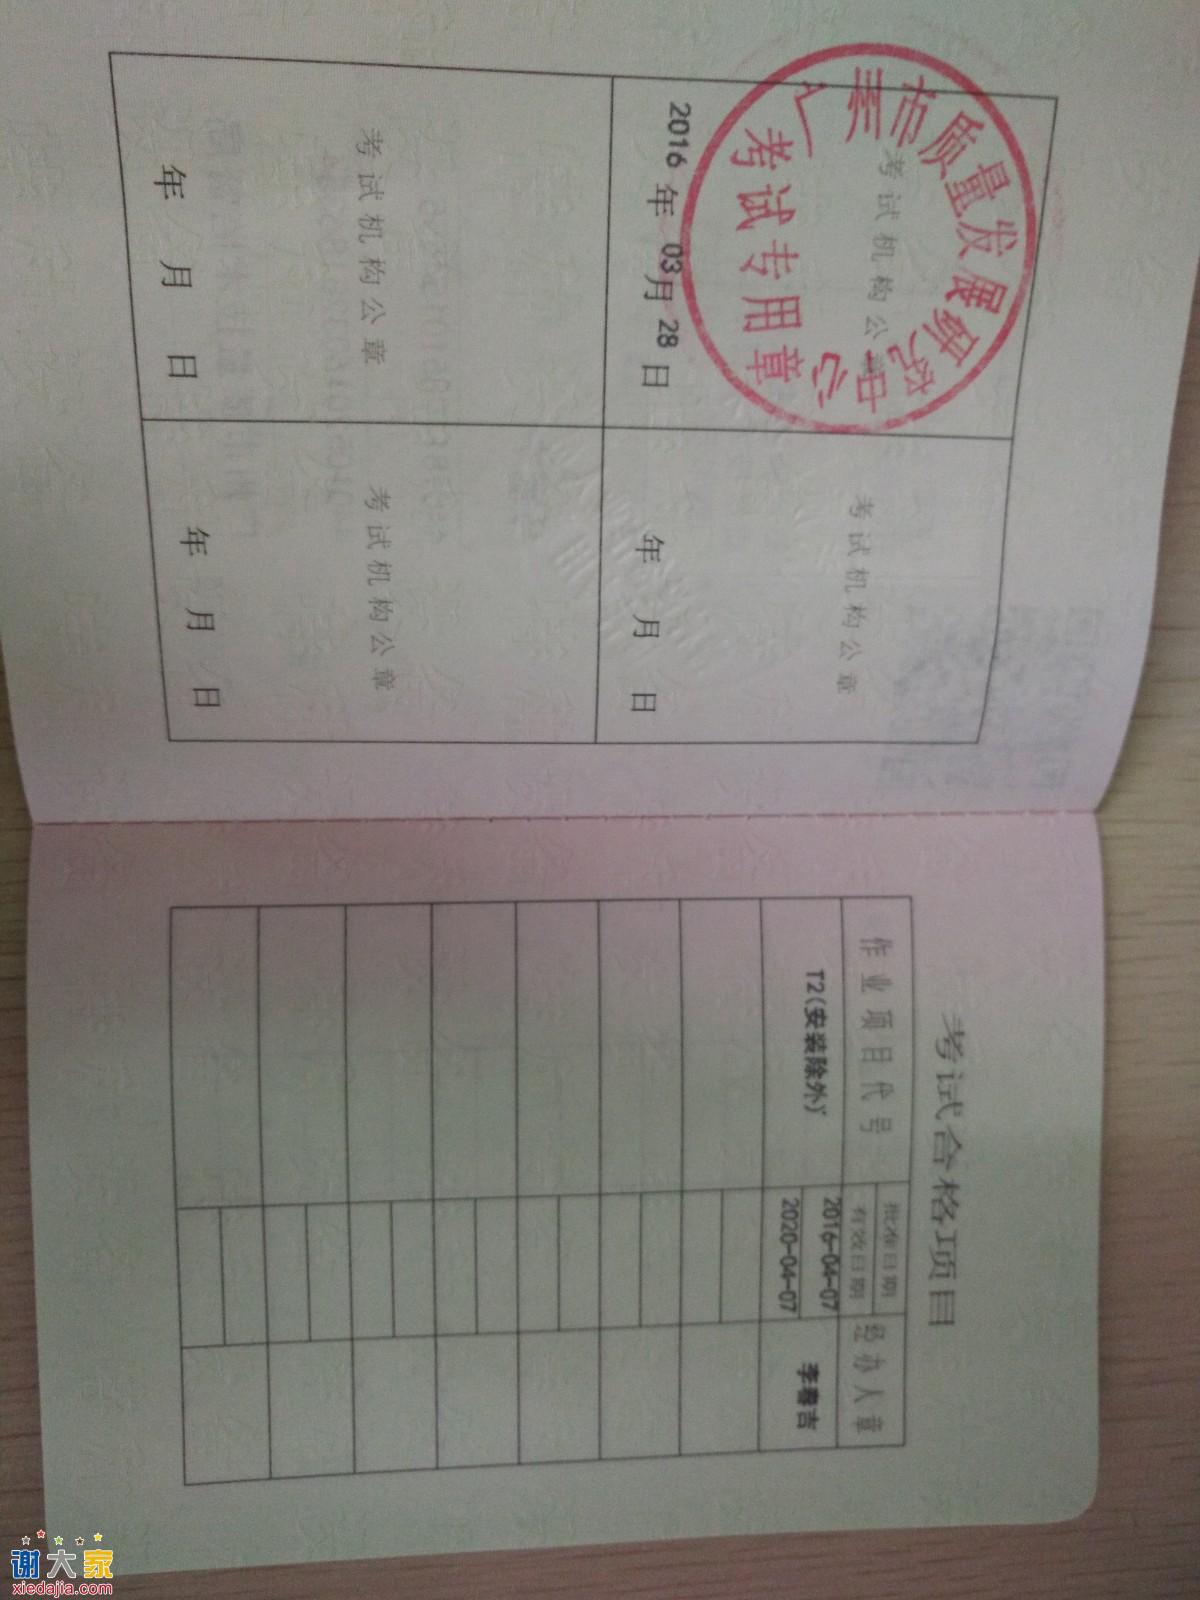 广州市质量发展研究中心
考试专用章
考试机构公章
2016 年 03 月 28 日
考试机构公章
年 月 日
考试机构公章
年 月 日
考试机构公章
年 月 日
考试合格项目
作业项目代号
批准日期
有效日期
经办人章
T2(安装除外)
2016-04-07
2020-04-07
李春吉
谢大家
xiedajia.com